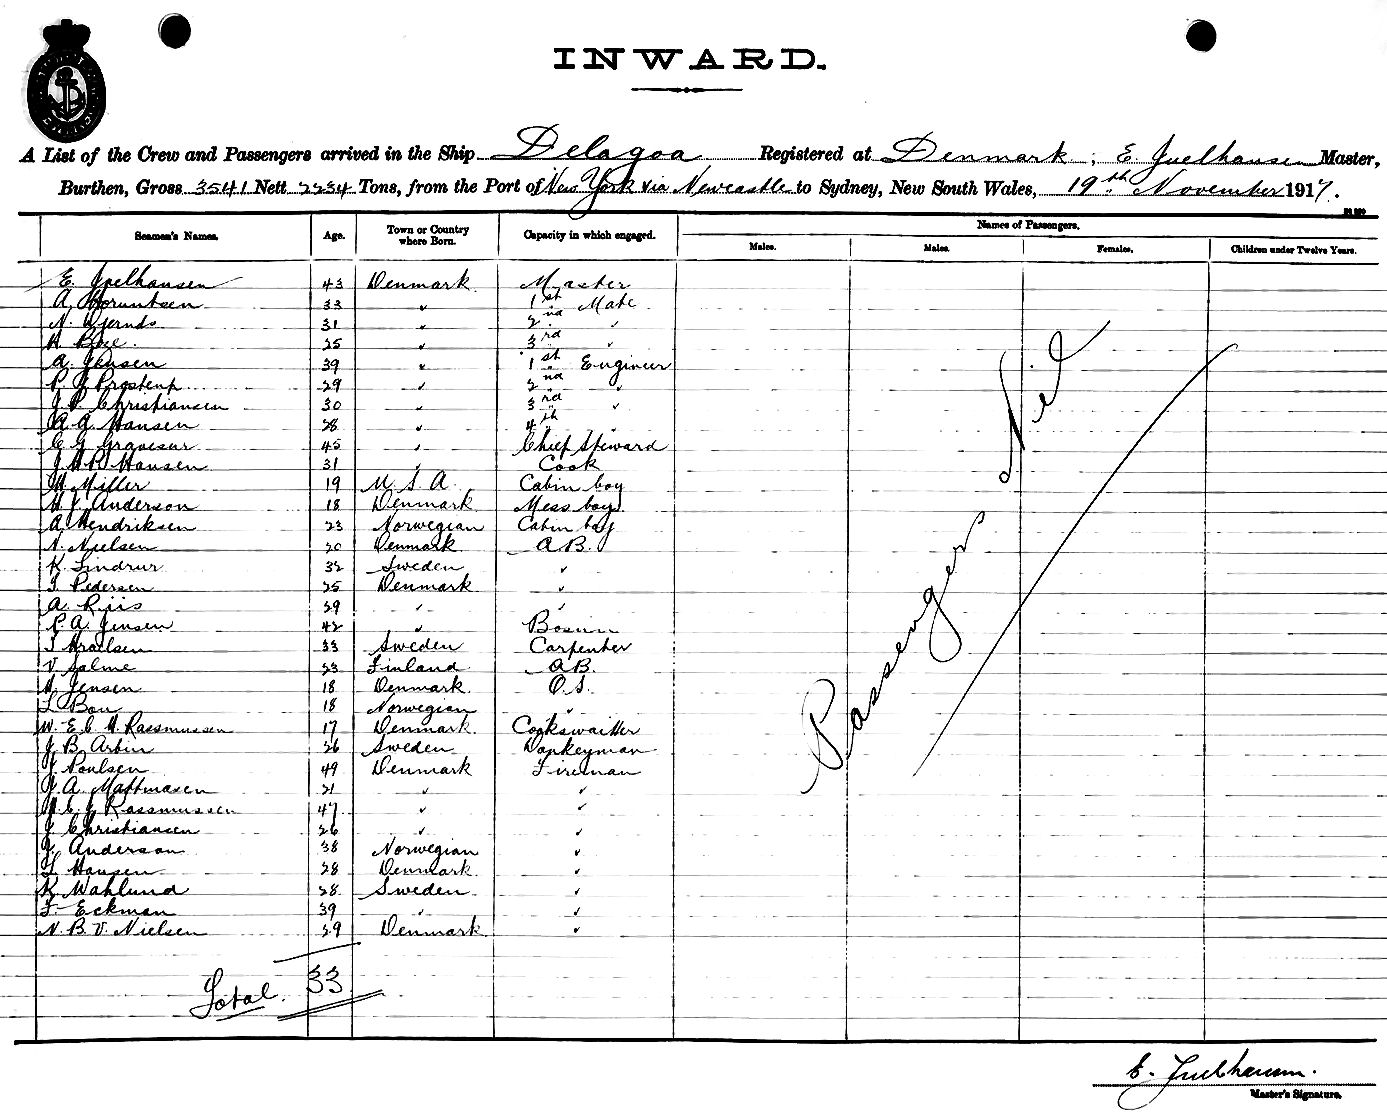 INWARD.
A List of the Crew and Passengers arrived in the Ship Delagoa Registered at Denmark, E. Juelhausen Master,
Burthen, Gross 3541 Nett 2234 Tons, from the Port of New York via Newcastle to Sydney, New South Wales, 19th November 1917.
Seamen's Names. Age. Town or Country where Born. Capacity in which engaged. Names of Passengers.
Males. Males. Females. Children under Twelve Years.
E. Juelhausen 43 Denmark Master
A 33 " 1st Mate
N. 31 " 2nd "
H 25 " 3rd "
A. Jensen 39 " 1st Engineer
P J 29 " 2nd "
J P Christiansen 30 " 3rd "
A A Hansen 28 " 4th "
C G 45 " Chief Steward
J H R Hansen 31 " Cook
M Miller 19 U. S. A. Cabin boy
H J Anderson 18 Denmark Mess boy
A Hendriksen 23 Norwegian Cabin boy
N. Nielsen 20 Denmark A.B.
K. 32 Sweden "
J Pedersen 25 Denmark "
A. Riis 29 " "
P. A. Jensen 42 " Bosun
33 Sweden Carpenter
V Salme 23 Finland A.B.
H Jensen 18 Denmark O.S.
L 18 Norwegian "
W. E. C H. Rassmussen 17 Denmark Cookswaitter
J B 26 Sweden Donkeyman
J Poulsen 49 Denmark Fireman
J. A. 21 " "
H. C. J. Rassmussen 47 " "
J Christiansen 26 " "
J. Anderson 38 Norwegian "
L Hansen 28 Denmark "
K Wahlund 28 Sweden "
F. Eckman 39 " "
N. B. V. Nielsen 29 Denmark "
Passengers Nil
Total. 33
E. Juelhausen.
Master's Signature.